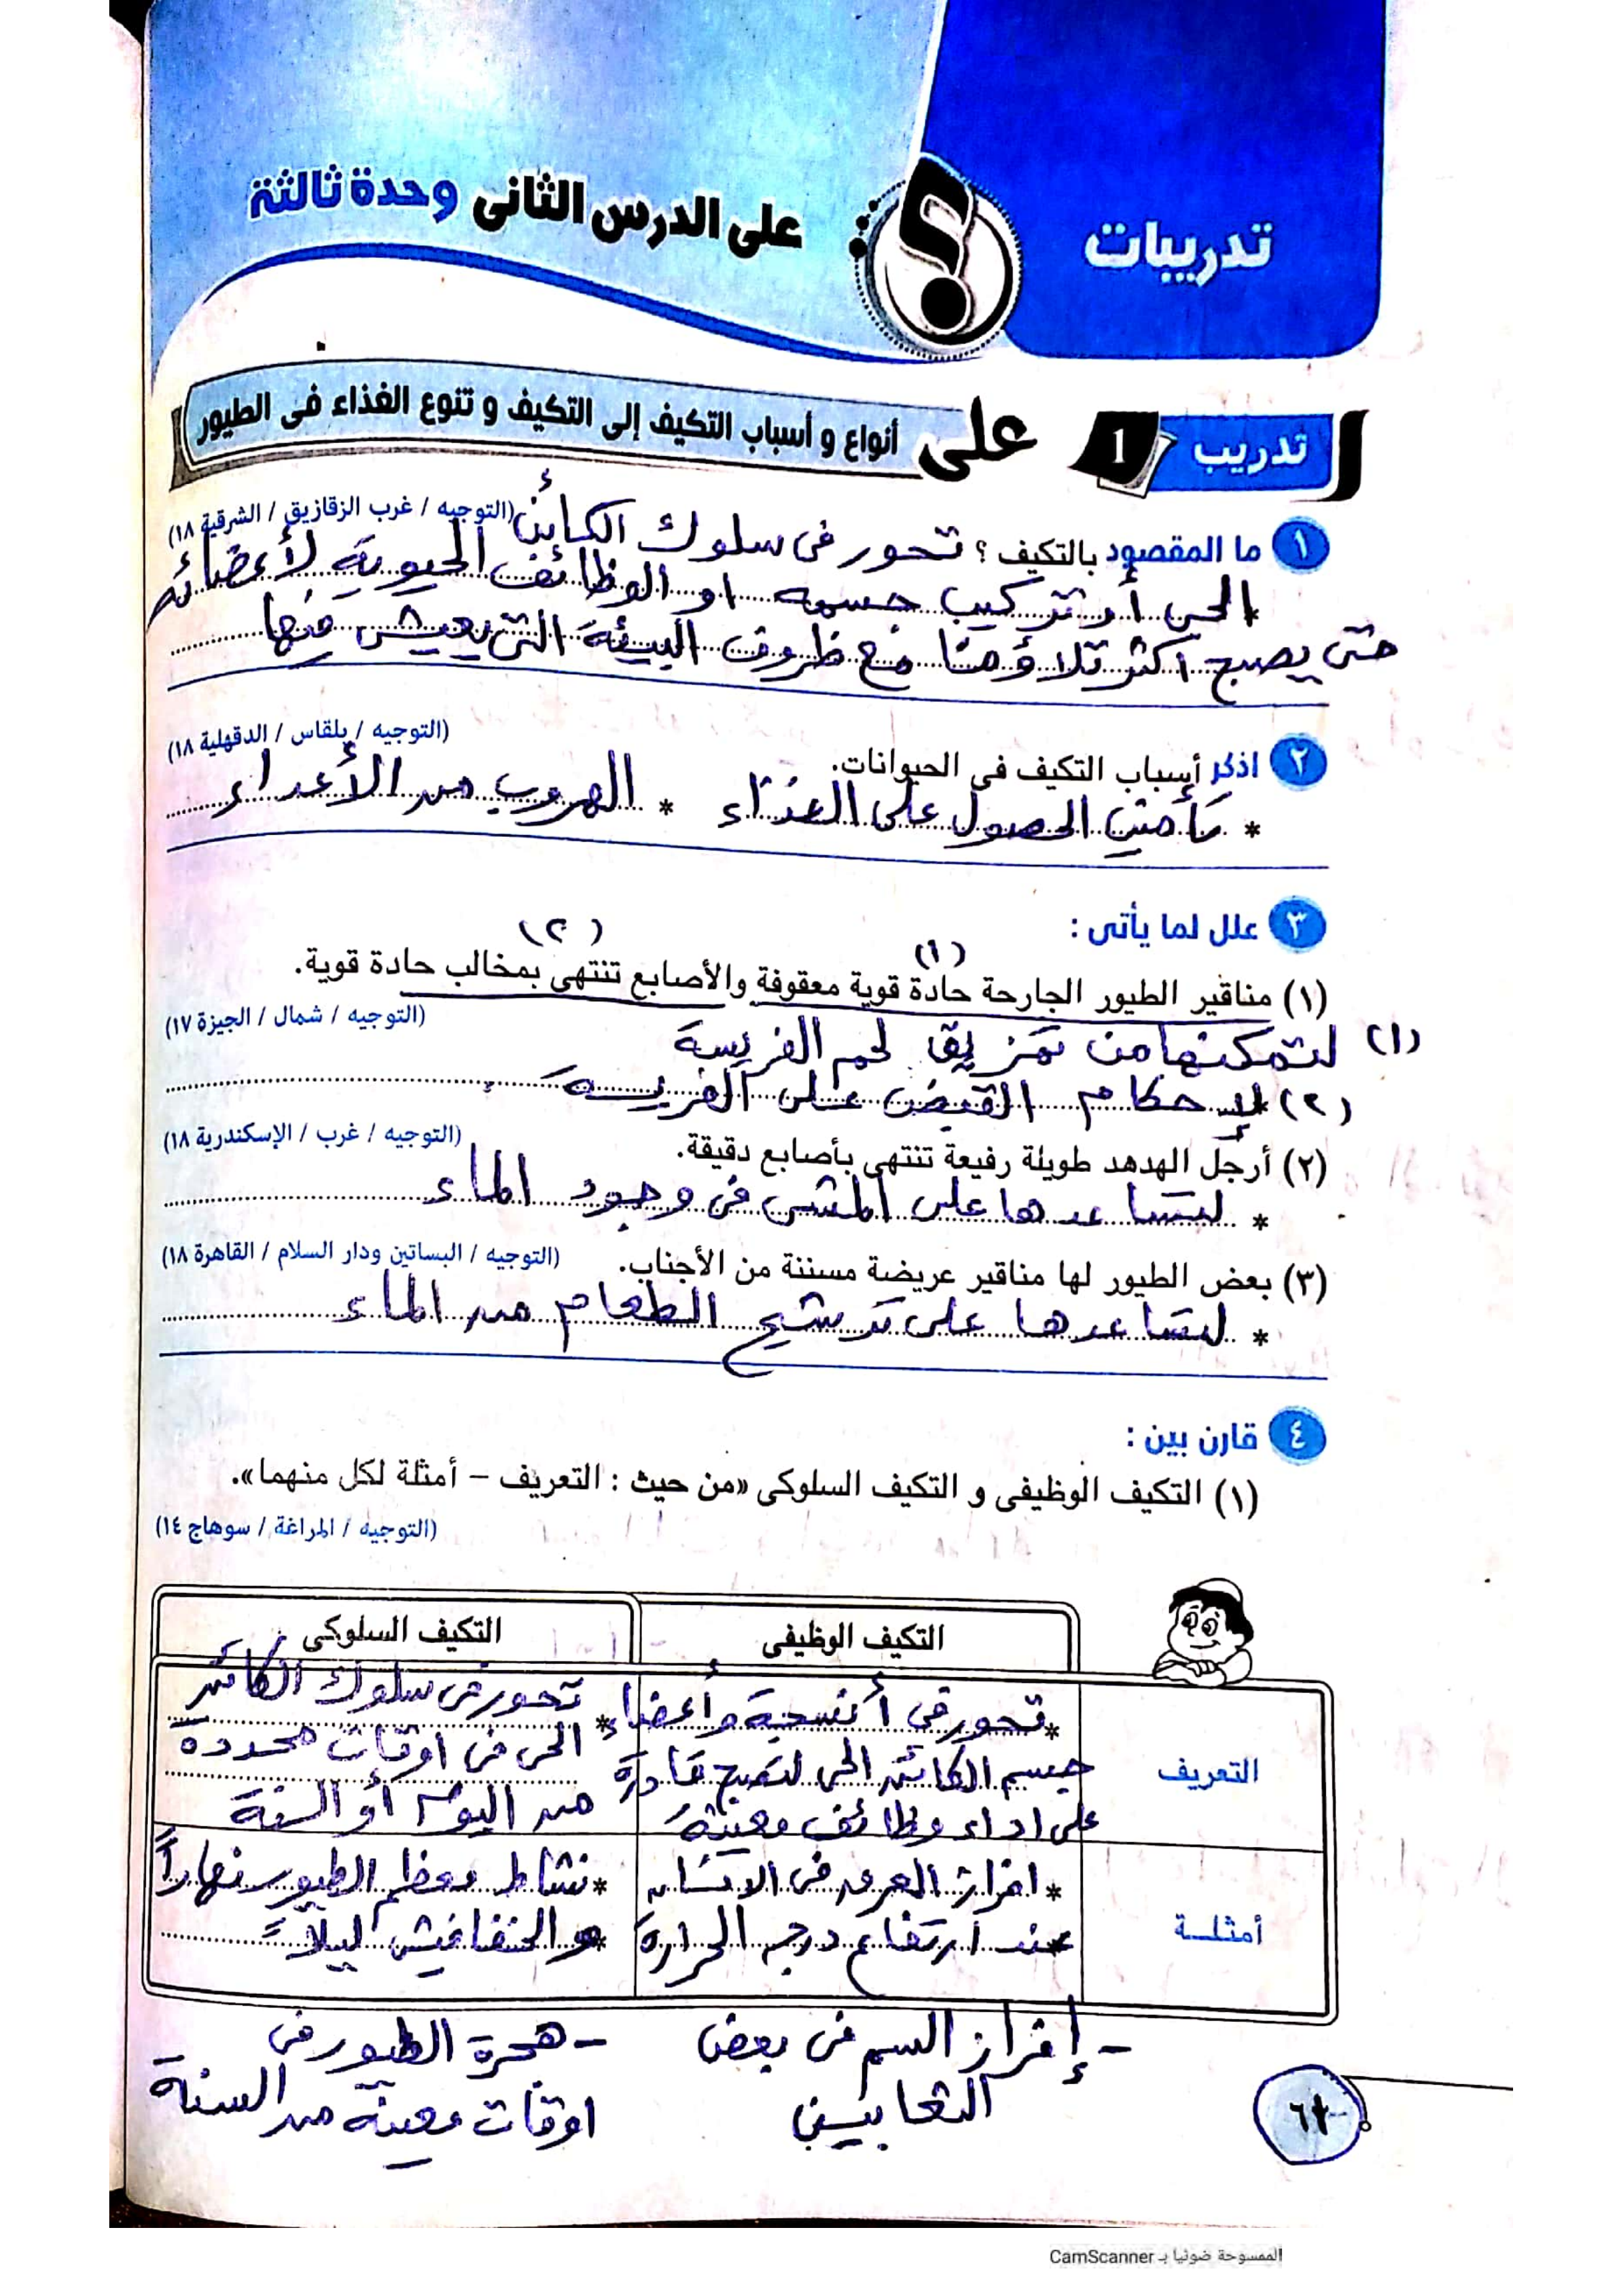 تدريبات
على الدرس الثانى وحدة ثالثة
تدريب 1 على أنواع و أسباب التكيف إلى التكيف و تنوع الغذاء فى الطيور
(التوجيه / غرب الزقازيق / الشرقية ١٨)
١ ما المقصود بالتكيف ؟ تحور فى سلوك الكائن
الحى أو تركيب جسمه او الوظائف الحيوية لأعضائه
حتى يصبح اكثر تلاؤمًا مع ظروف البيئة التى يعيش فيها
(التوجيه / بلقاس / الدقهلية ١٨)
٢ اذكر أسباب التكيف فى الحيوانات.
* تأمين الحصول على الغذاء * الهروب من الأعداء
٣ علل لما يأتى :
(١) (٢)
(١) مناقير الطيور الجارحة حادة قوية معقوفة والأصابع تنتهى بمخالب حادة قوية.
(التوجيه / شمال / الجيزة ١٧)
(١) لتمكنها من تمزيق لحم الفريسة
(٢) لإحكام القبض على الفريسة
(التوجيه / غرب / الإسكندرية ١٨)
(٢) أرجل الهدهد طويلة رفيعة تنتهى بأصابع دقيقة.
* لتساعدها على المشى فى وجود الماء
(التوجيه / البساتين ودار السلام / القاهرة ١٨)
(٣) بعض الطيور لها مناقير عريضة مسننة من الأجناب.
* لتساعدها على ترشيح الطعام من الماء
٤ قارن بين :
(١) التكيف الوظيفى و التكيف السلوكى «من حيث : التعريف – أمثلة لكل منهما».
(التوجيه / المراغة / سوهاج ١٤)
التكيف الوظيفى
التكيف السلوكى
التعريف
* تحور في أنسجة وأعضاء
جسم الكائن الحى لتصبح قادرة
على اداء وظائف معينة
* تحور فى سلوك الكائن
الحى فى اوقات محددة
من اليوم أو السنة
أمثلة
* افراز العرق فى الانسان
عند ارتفاع درجه الحرارة
* نشاط معظم الطيور نهاراً
والخفافيش ليلاً
- إفراز السم فى بعض
الثعابين
- هجرة الطيور فى
اوقات معينة من السنة
الممسوحة ضوئيا بـ CamScanner